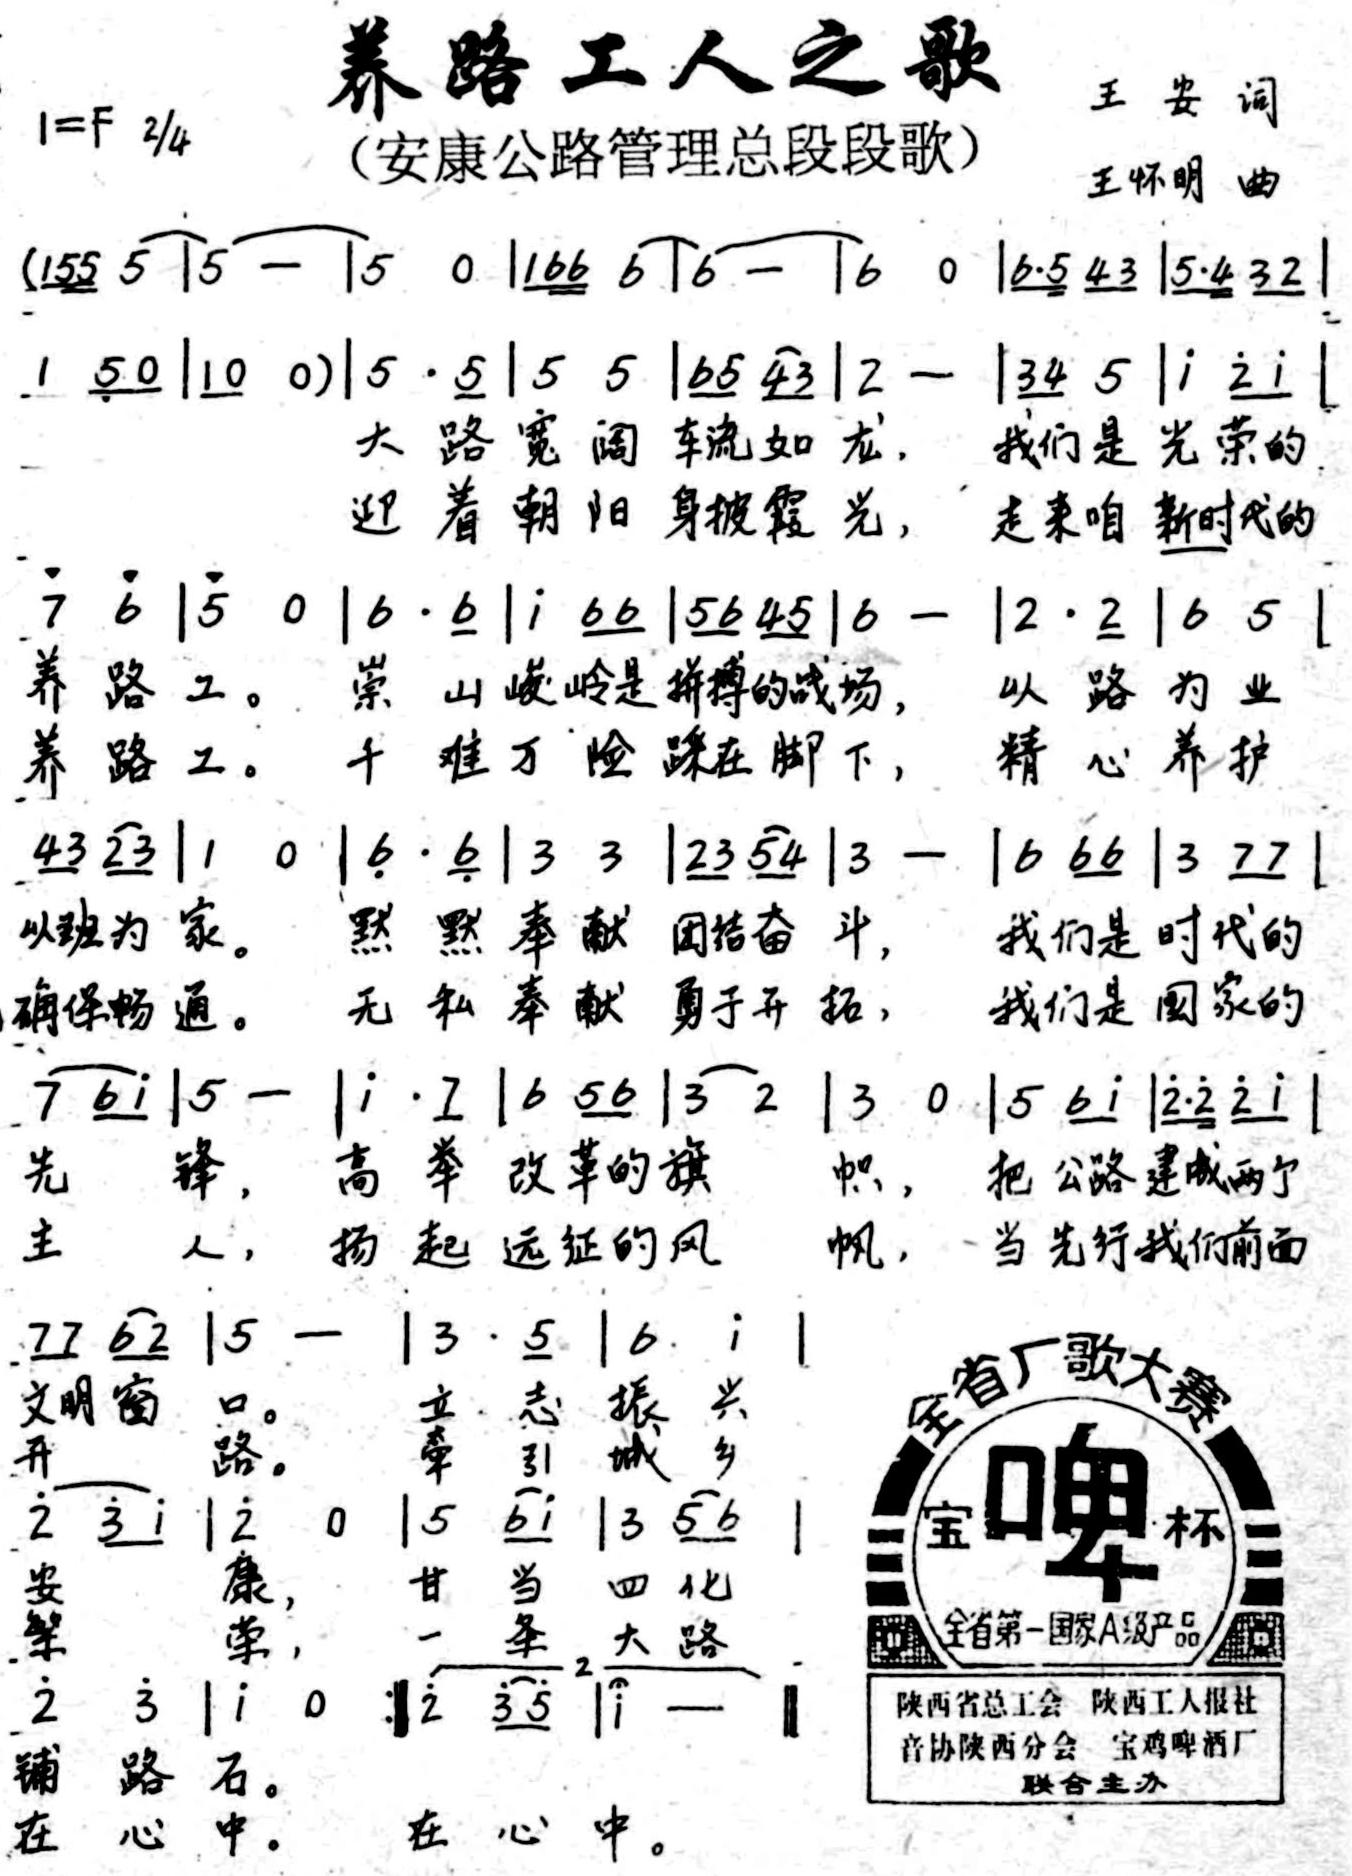 养路工人之歌
1=F 2/4
(安康公路管理总段段歌)
王安 词
王怀明 曲
(155 5 | 5 — | 5 0 | 166 6 | 6 — | 6 0 | 6·5 43 | 5·4 32 |
1 50 | 10 0) | 5 · 5 | 5 5 | 65 43 | 2 — | 34 5 | i 2i |
大路宽阔车流如龙， 我们是光荣的
迎着朝阳身披霞光， 走来咱新时代的
7 6 | 5 0 | 6 · 6 | i 66 | 56 45 | 6 — | 2 · 2 | 6 5 |
养路工。 崇山峻岭是拼搏的战场， 以路为业
养路工。 千难万险踩在脚下， 精心养护
43 23 | 1 0 | 6 · 6 | 3 3 | 23 54 | 3 — | 6 66 | 3 77 |
以班为家。 默默奉献团结奋斗， 我们是时代的
确保畅通。 无私奉献勇于开拓， 我们是国家的
7 6i | 5 — | i · 7 | 6 56 | 3 2 | 3 0 | 5 6i | 2·2 2i |
先锋， 高举改革的旗帜， 把公路建成两个
主人， 扬起远征的风帆， 当先行我们前面
77 62 | 5 — | 3 · 5 | 6 i |
文明窗口。 立志振兴
开路。 牵引城乡
2 3i | 2 0 | 5 6i | 3 56 |
安康， 甘当四化
繁荣， 一条大路
2 3 | i 0 :‖ 2 35 | i — ‖
2
铺路石。
在心中。 在心中。
全省厂歌大赛
宝啤杯
全省第一国家A级产品
陕西省总工会 陕西工人报社
音协陕西分会 宝鸡啤酒厂
联合主办